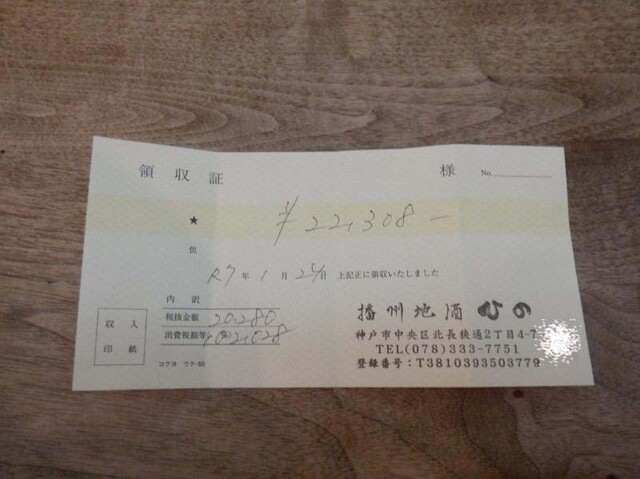 領収証 様 No.
★ ¥22,308-
但
R7年1月25日 上記正に領収いたしました
内訳
税抜金額 20,280
消費税額等(%) 2,028
収入印紙
コクヨ ウケ-55
播州地酒 ひの
神戸市中央区北長狭通2丁目4-7
TEL(078)333-7751
登録番号:T3810393503779